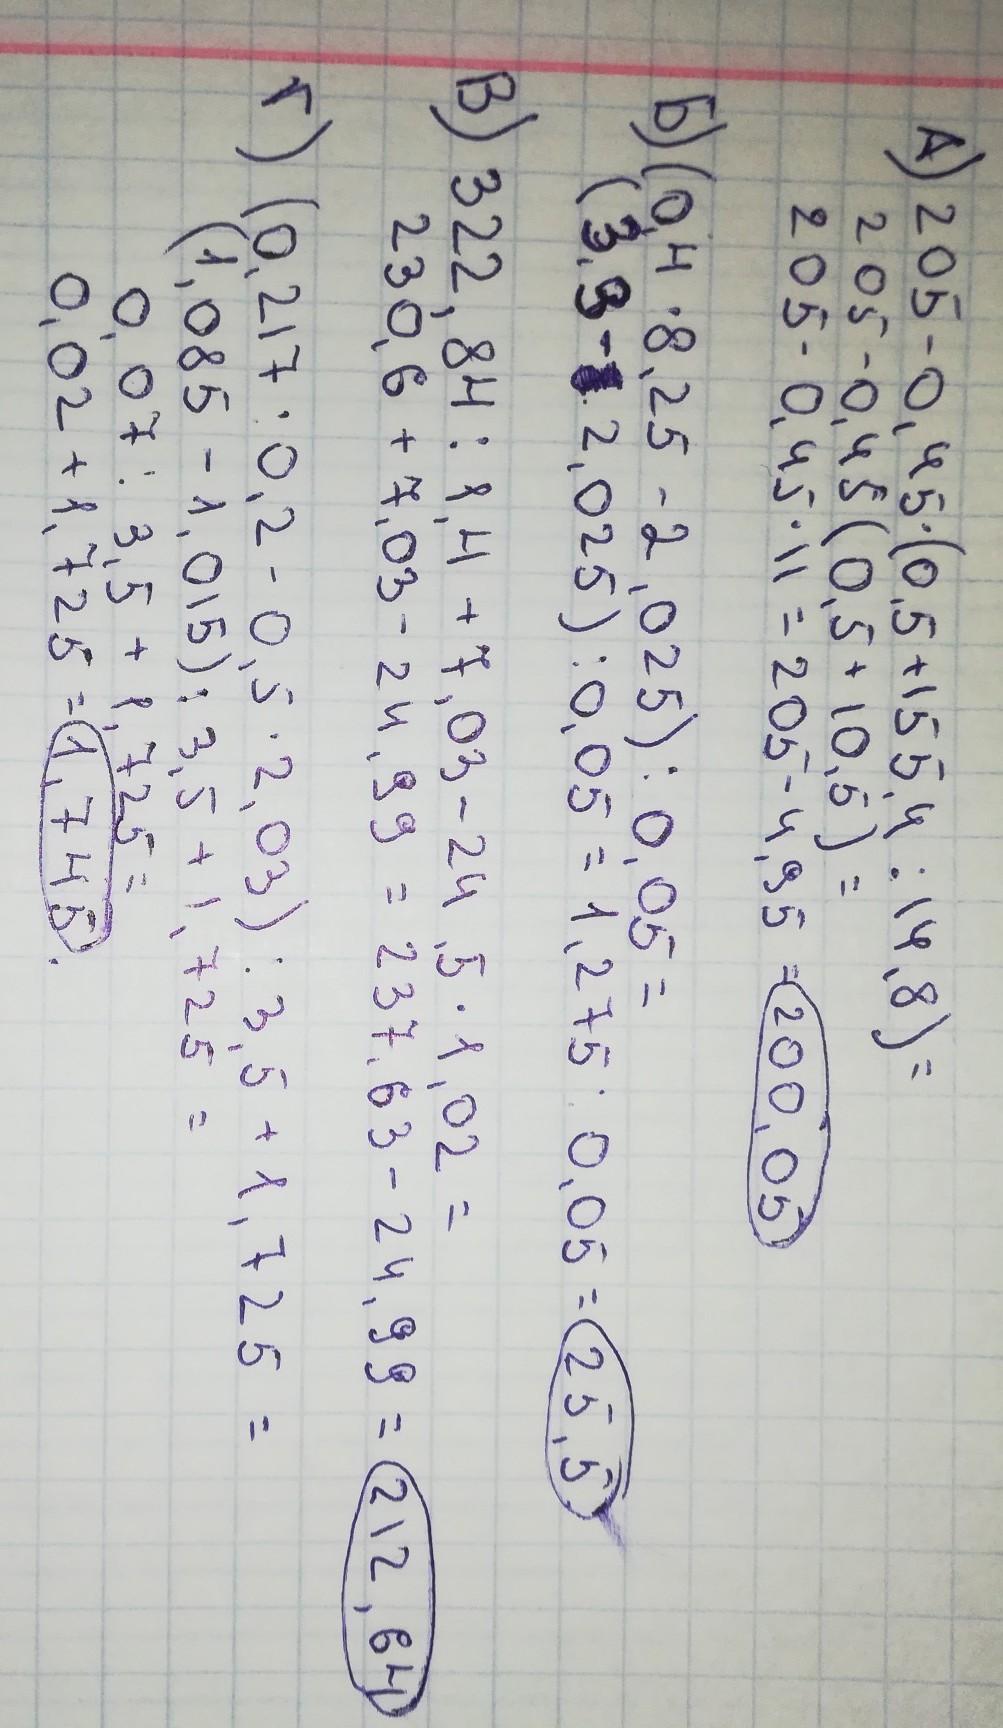 А) 205-0,45·(0,5+155,4:14,8)=
205-0,45(0,5+10,5)=
205-0,45·11=205-4,95=200,05
Б) (0,4·8,25-2,025):0,05=
(3,3-2,025):0,05=1,275:0,05=25,5
В) 322,84:1,4+7,03-24,5·1,02=
230,6+7,03-24,99=237,63-24,99=212,64
Г) (0,217:0,2-0,5·2,03):3,5+1,725=
(1,085-1,015):3,5+1,725=
0,07:3,5+1,725=
0,02+1,725=1,745.